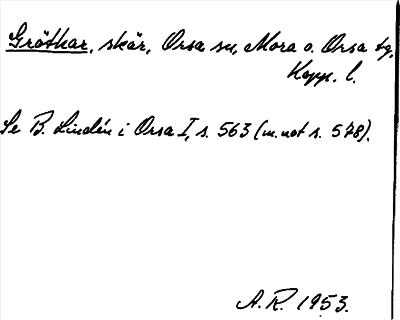 Gröthar, skär, Orsa sn, Mora o. Orsa tg,
Kopp. l.
Se B. Lindén i Orsa I, s. 563 (m. not s. 578).
A. R. 1953.